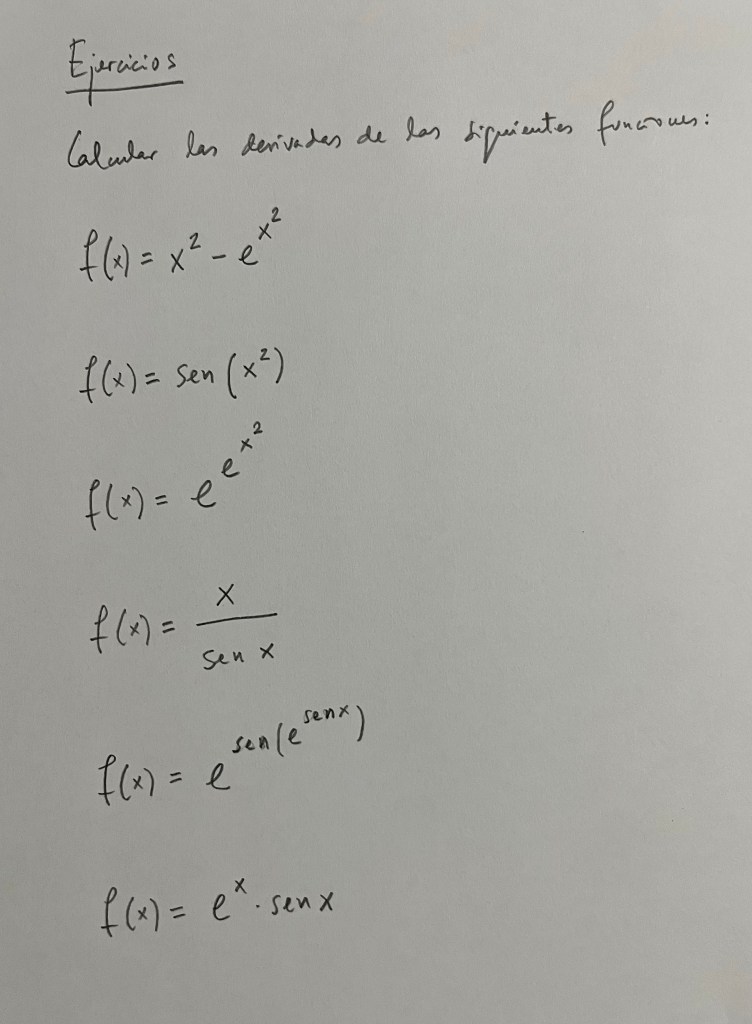 Ejercicios
Calcular las derivadas de las siguientes funciones:
f(x) = x² - e^x²
f(x) = sen (x²)
f(x) = e^e^x²
f(x) = x / sen x
f(x) = e^sen(e^senx)
f(x) = e^x · sen x